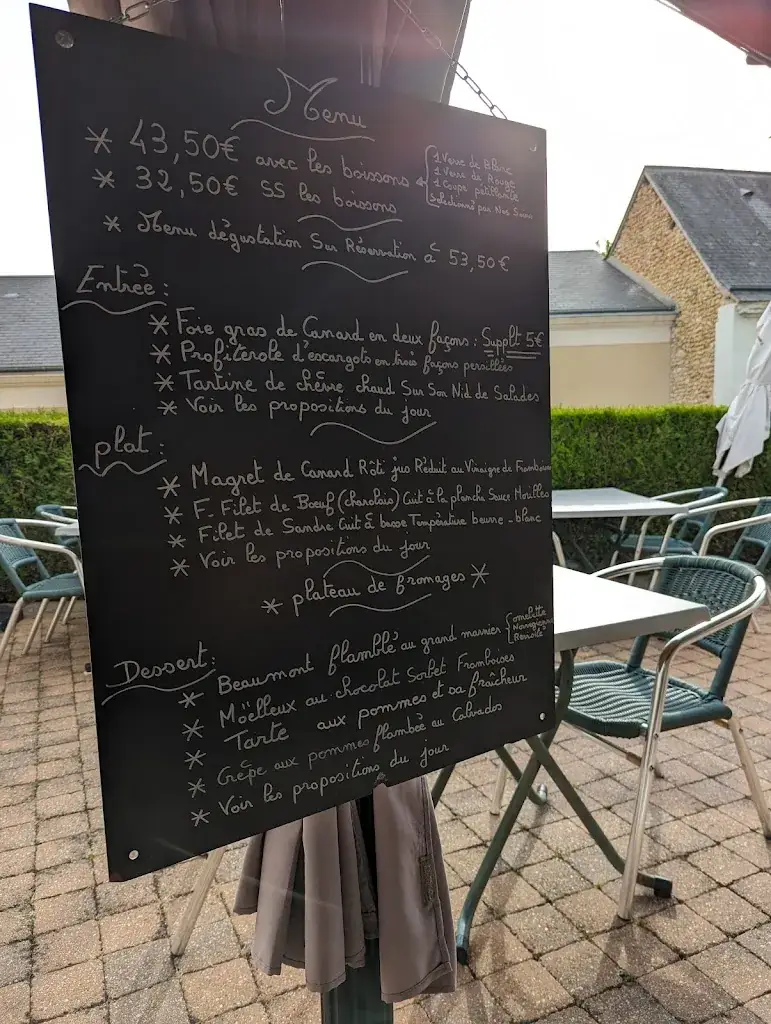 Menu
* 43,50€ avec les boissons
1 Verre de Blanc
1 Verre de Rouge
1 Coupe pétillante
Selectionné par Nos Soins
* 32,50€ SS les boissons
* Menu dégustation Sur Réservation à 53,50€
Entrée :
* Foie gras de Canard en deux façons : Supplt 5€
* Profiterole d'escargots en trois façons persillées
* Tartine de chêvre chaud Sur Son Nid de Salades
* Voir les propositions du jour
plat :
* Magret de Canard Rôti jus Réduit au Vinaigre de Framboise
* F. Filet de Bœuf (charolais) Cuit à la plancha Sauce Morilles
* Filet de Sandre Cuit à basse Température beurre-blanc
* Voir les propositions du jour
* plateau de fromages *
Dessert :
* Beaumont flamblé au grand marnier
omelette
Norvegienne
Revisité
* Möelleux au chocolat Sorbet Framboises
* Tarte aux pommes et sa fraîcheur
* Crêpe aux pommes flambée au Calvados
* Voir les propositions du jour